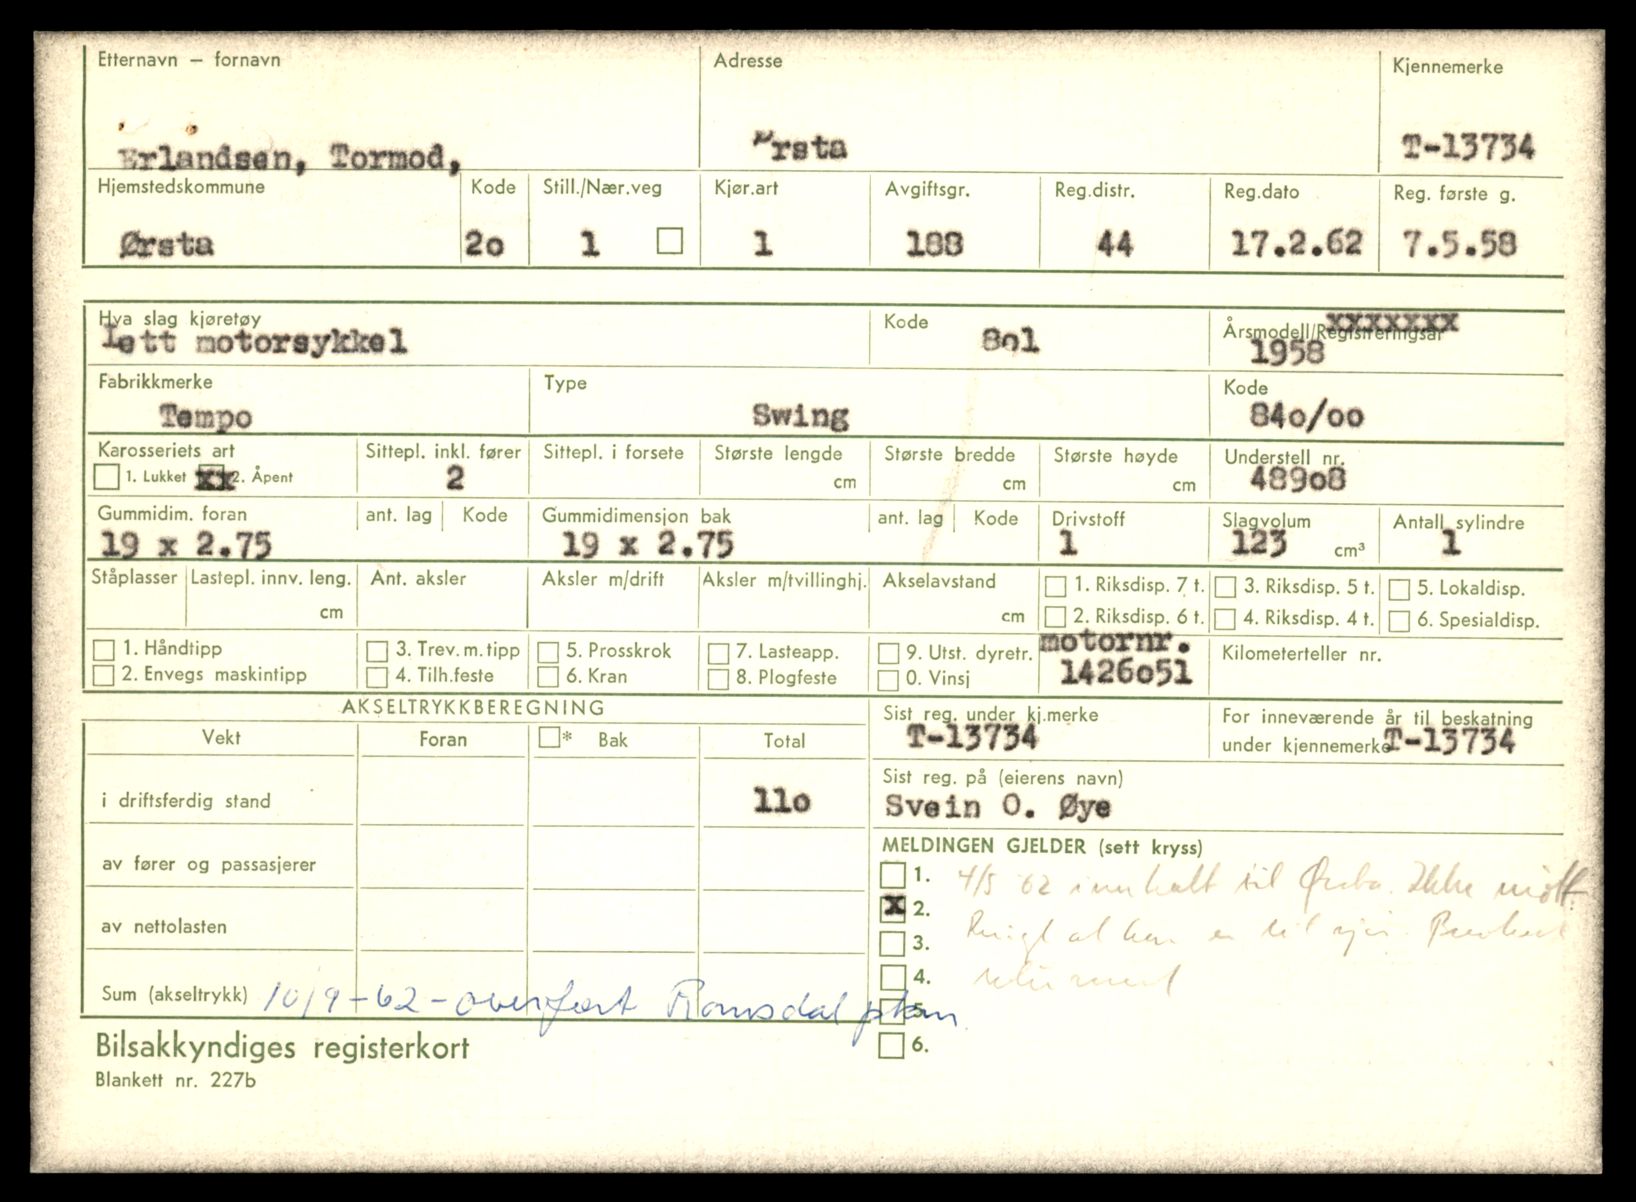 Etternavn – fornavn Adresse Kjennemerke
Erlandsen, Tormod, Ørsta T-13734
Hjemstedskommune Kode Still./Nær.veg Kjør.art Avgiftsgr. Reg.distr. Reg.dato Reg. første g.
Ørsta 2o 1 1 188 44 17.2.62 7.5.58
Hva slag kjøretøy Kode Årsmodell/Registreringsår xxxxxxx
Lett motorsykkel 8o1 1958
Fabrikkmerke Type Kode
Tempo Swing 84o/oo
Karosseriets art Sittepl. inkl. fører Sittepl. i forsete Største lengde Største bredde Største høyde Understell nr.
1. Lukket xx 2. Åpent 2 cm cm cm 489o8
Gummidim. foran ant. lag Kode Gummidimensjon bak ant. lag Kode Drivstoff Slagvolum Antall sylindre
19 x 2.75 19 x 2.75 1 123 cm³ 1
Ståplasser Lastepl. innv. leng. Ant. aksler Aksler m/drift Aksler m/tvillinghj. Akselavstand 1. Riksdisp. 7 t. 3. Riksdisp. 5 t. 5. Lokaldisp.
cm cm 2. Riksdisp. 6 t. 4. Riksdisp. 4 t. 6. Spesialdisp.
1. Håndtipp 3. Trev.m.tipp 5. Prosskrok 7. Lasteapp. 9. Utst. dyretr. motornr. Kilometerteller nr.
2. Envegs maskintipp 4. Tilh.feste 6. Kran 8. Plogfeste 0. Vinsj 1426o51
AKSELTRYKKBEREGNING Sist reg. under kj.merke For inneværende år til beskatning
Vekt Foran * Bak Total T-13734 under kjennemerke T-13734
Sist reg. på (eierens navn)
i driftsferdig stand 11o Svein O. Øye
MELDINGEN GJELDER (sett kryss)
av fører og passasjerer 1. 4/5 62 innkalt til Ørsta. Ikke møtt.
x 2.
av nettolasten 3. at han er til sjøs.
4. returnert
Sum (akseltrykk) 10/9-62 - overført Romsdal 5.
Bilsakkyndiges registerkort 6.
Blankett nr. 227b